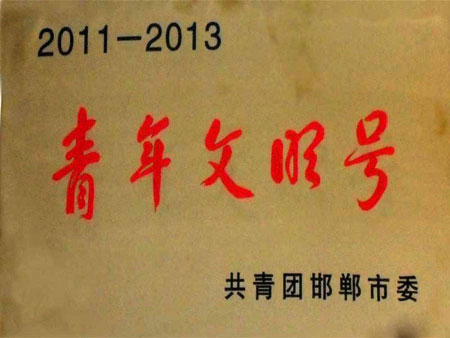 2011－2013
青年文明号
共青团邯郸市委